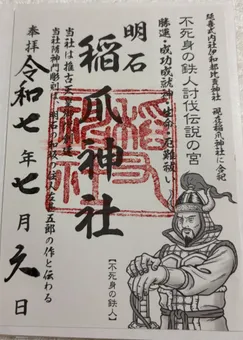 延喜式内社伊和都比売神社に合祀 現在稲爪神社
不死身の鉄人討伐伝説の宮
勝運・成功成就
明石
稲爪神社
当社は推古天皇
当社随神門彫刻
五郎の作と伝わる
奉拝
令和七年七月六日
【不死身の鉄人】